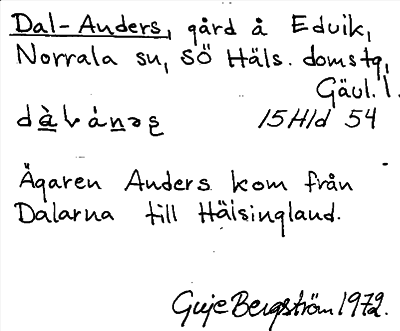 Dal-Anders, gård å Edvik,
Norrala sn, SÖ Häls. domstg,
Gävl. l.
15 H1d 54
Ägaren Anders kom från
Dalarna till Hälsingland.
Guje Bergström 1972.